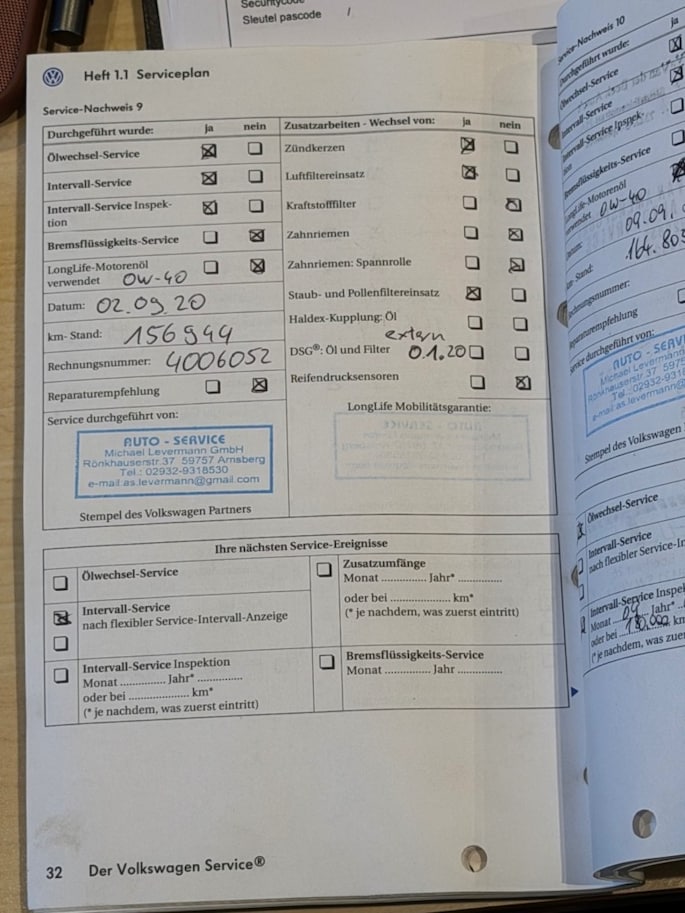 Sleutel pascode /
Heft 1.1 Serviceplan
Service-Nachweis 9
Durchgeführt wurde: ja nein
Ölwechsel-Service
Intervall-Service
Intervall-Service Inspek-
tion
Bremsflüssigkeits-Service
LongLife-Motorenöl
verwendet 0W-40
Datum: 02.09.20
km- Stand: 156944
Rechnungsnummer: 4006052
Reparaturempfehlung
Service durchgeführt von:
AUTO - SERVICE
Michael Levermann GmbH
Rönkhauserstr.37 59757 Arnsberg
Tel.: 02932-9318530
e-mail:as.levermann@gmail.com
Stempel des Volkswagen Partners
Zusatzarbeiten - Wechsel von: ja nein
Zündkerzen
Luftfiltereinsatz
Kraftstofffilter
Zahnriemen
Zahnriemen: Spannrolle
Staub- und Pollenfiltereinsatz
Haldex-Kupplung: Öl
extern
DSG®: Öl und Filter 01.20
Reifendrucksensoren
LongLife Mobilitätsgarantie:
Ihre nächsten Service-Ereignisse
Ölwechsel-Service
Intervall-Service
nach flexibler Service-Intervall-Anzeige
Intervall-Service Inspektion
Monat .............. Jahr* ..............
oder bei .................... km*
(* je nachdem, was zuerst eintritt)
Zusatzumfänge
Monat .............. Jahr* ..............
oder bei .................... km*
(* je nachdem, was zuerst eintritt)
Bremsflüssigkeits-Service
Monat .............. Jahr ..............
32 Der Volkswagen Service®
Service-Nachweis 10
ja
Durchgeführt wurde:
Ölwechsel-Service
Intervall-Service
Intervall-Service Inspek-
Bremsflüssigkeits-Service
0W-40
09.09.
164.803
Rechnungsnummer:
Reparaturempfehlung
Service durchgeführt von:
AUTO - SERV
Michael Levermann
Rönkhauserstr.37 5975
Tel.: 02932-931
e-mail:as.levermann@
Stempel des Volkswagen
Ölwechsel-Service
Intervall-Service
nach flexibler Service-In
Intervall-Service Inspe
Monat 09 Jahr*
oder bei 180.000 km
(* je nachdem, was zuer